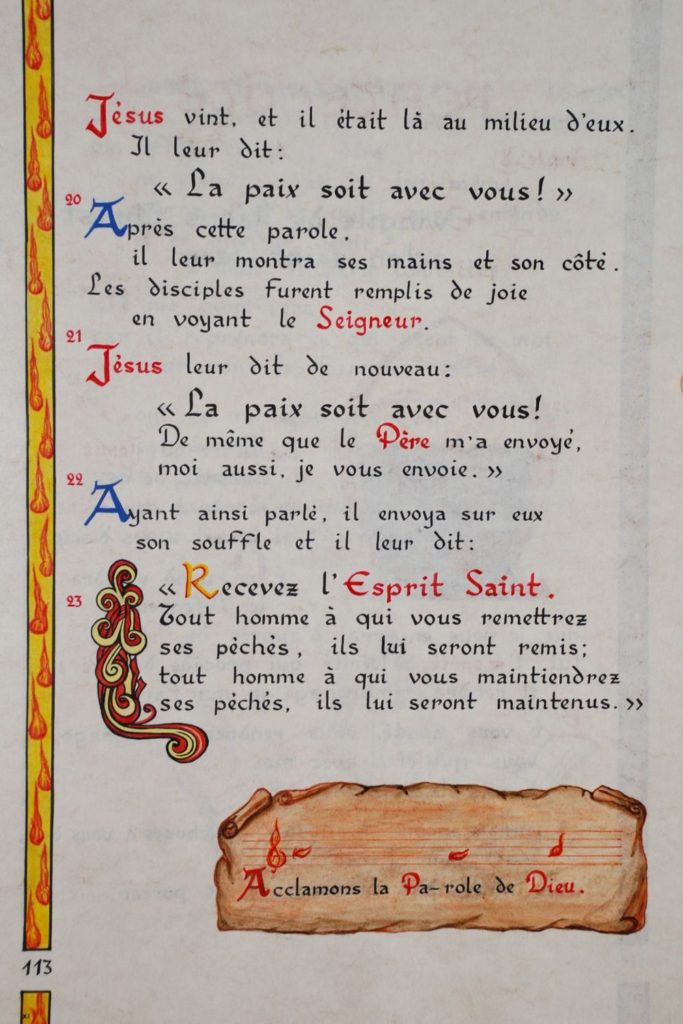 Jésus vint, et il était là au milieu d'eux.
Il leur dit:
« La paix soit avec vous! »
20
Après cette parole,
il leur montra ses mains et son côté.
Les disciples furent remplis de joie
en voyant le Seigneur.
21
Jésus leur dit de nouveau:
« La paix soit avec vous!
De même que le Père m'a envoyé,
moi aussi, je vous envoie. »
22
Ayant ainsi parlé, il envoya sur eux
son souffle et il leur dit:
« Recevez l'Esprit Saint.
23
Tout homme à qui vous remettrez
ses péchés, ils lui seront remis;
tout homme à qui vous maintiendrez
ses péchés, ils lui seront maintenus. »
Acclamons la Pa-role de Dieu.
113